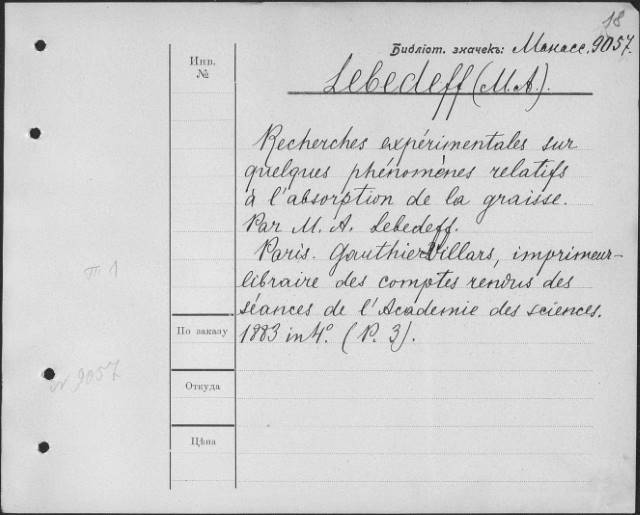 18
Библіот. значекъ: Манасс. 9057.
Инв.
№
Lebedeff (M. A.).
Recherches expérimentales sur
quelques phénomènes relatifs
à l'absorption de la graisse.
Par M. A. Lebedeff.
Paris. Gauthier Villars, imprimeur-
libraire des comptes rendus des
séances de l'Academie des sciences.
1883 in 4°. (P. 3).
По заказу
Откуда
Цѣна
9057